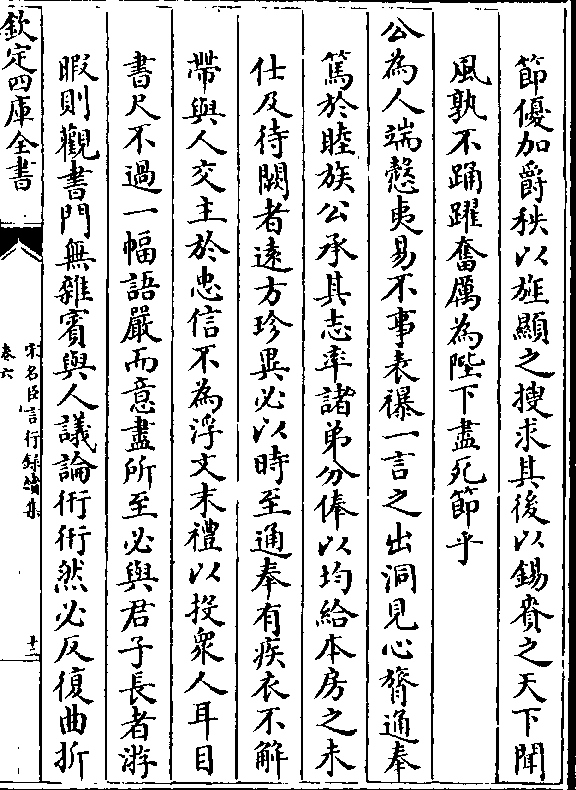 節優加爵秩以旌顯之搜求其後以錫賚之天下聞
風孰不踊躍奮厲為陛下盡死節乎
公為人端慤夷易不事表襮一言之出洞見心膂通奉
篤於睦族公承其志率諸弟分俸以均給本房之未
仕及待闕者遠方珍異必以時至通奉有疾衣不解
帶與人交主於忠信不為浮文末禮以投衆人耳目
書尺不過一幅語嚴而意盡所至必與君子長者游
暇則觀書門無雜賓與人議論衎衎然必反復曲折
欽定四庫全書
宋名臣言行録續集
卷六
十二